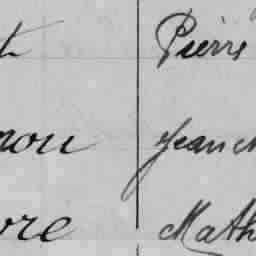 t Pierre
nou Jean
ore Math